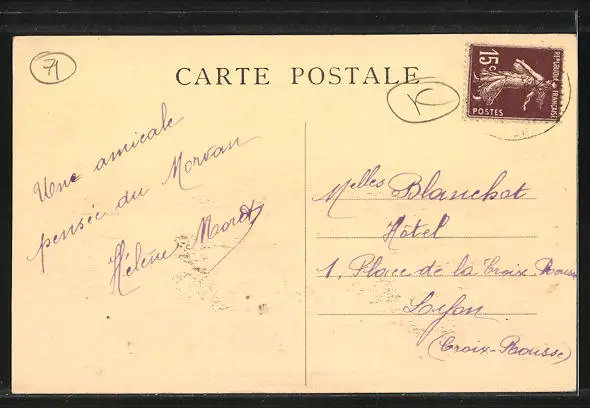 71
CARTE POSTALE
K
15c
REPUBLIQUE FRANÇAISE
POSTES
Une amicale
pensée du Morvan
Hélène Moret
Melles Blanchot
Hôtel
1, Place de la Croix-Rousse
Lyon
(Croix-Rousse)